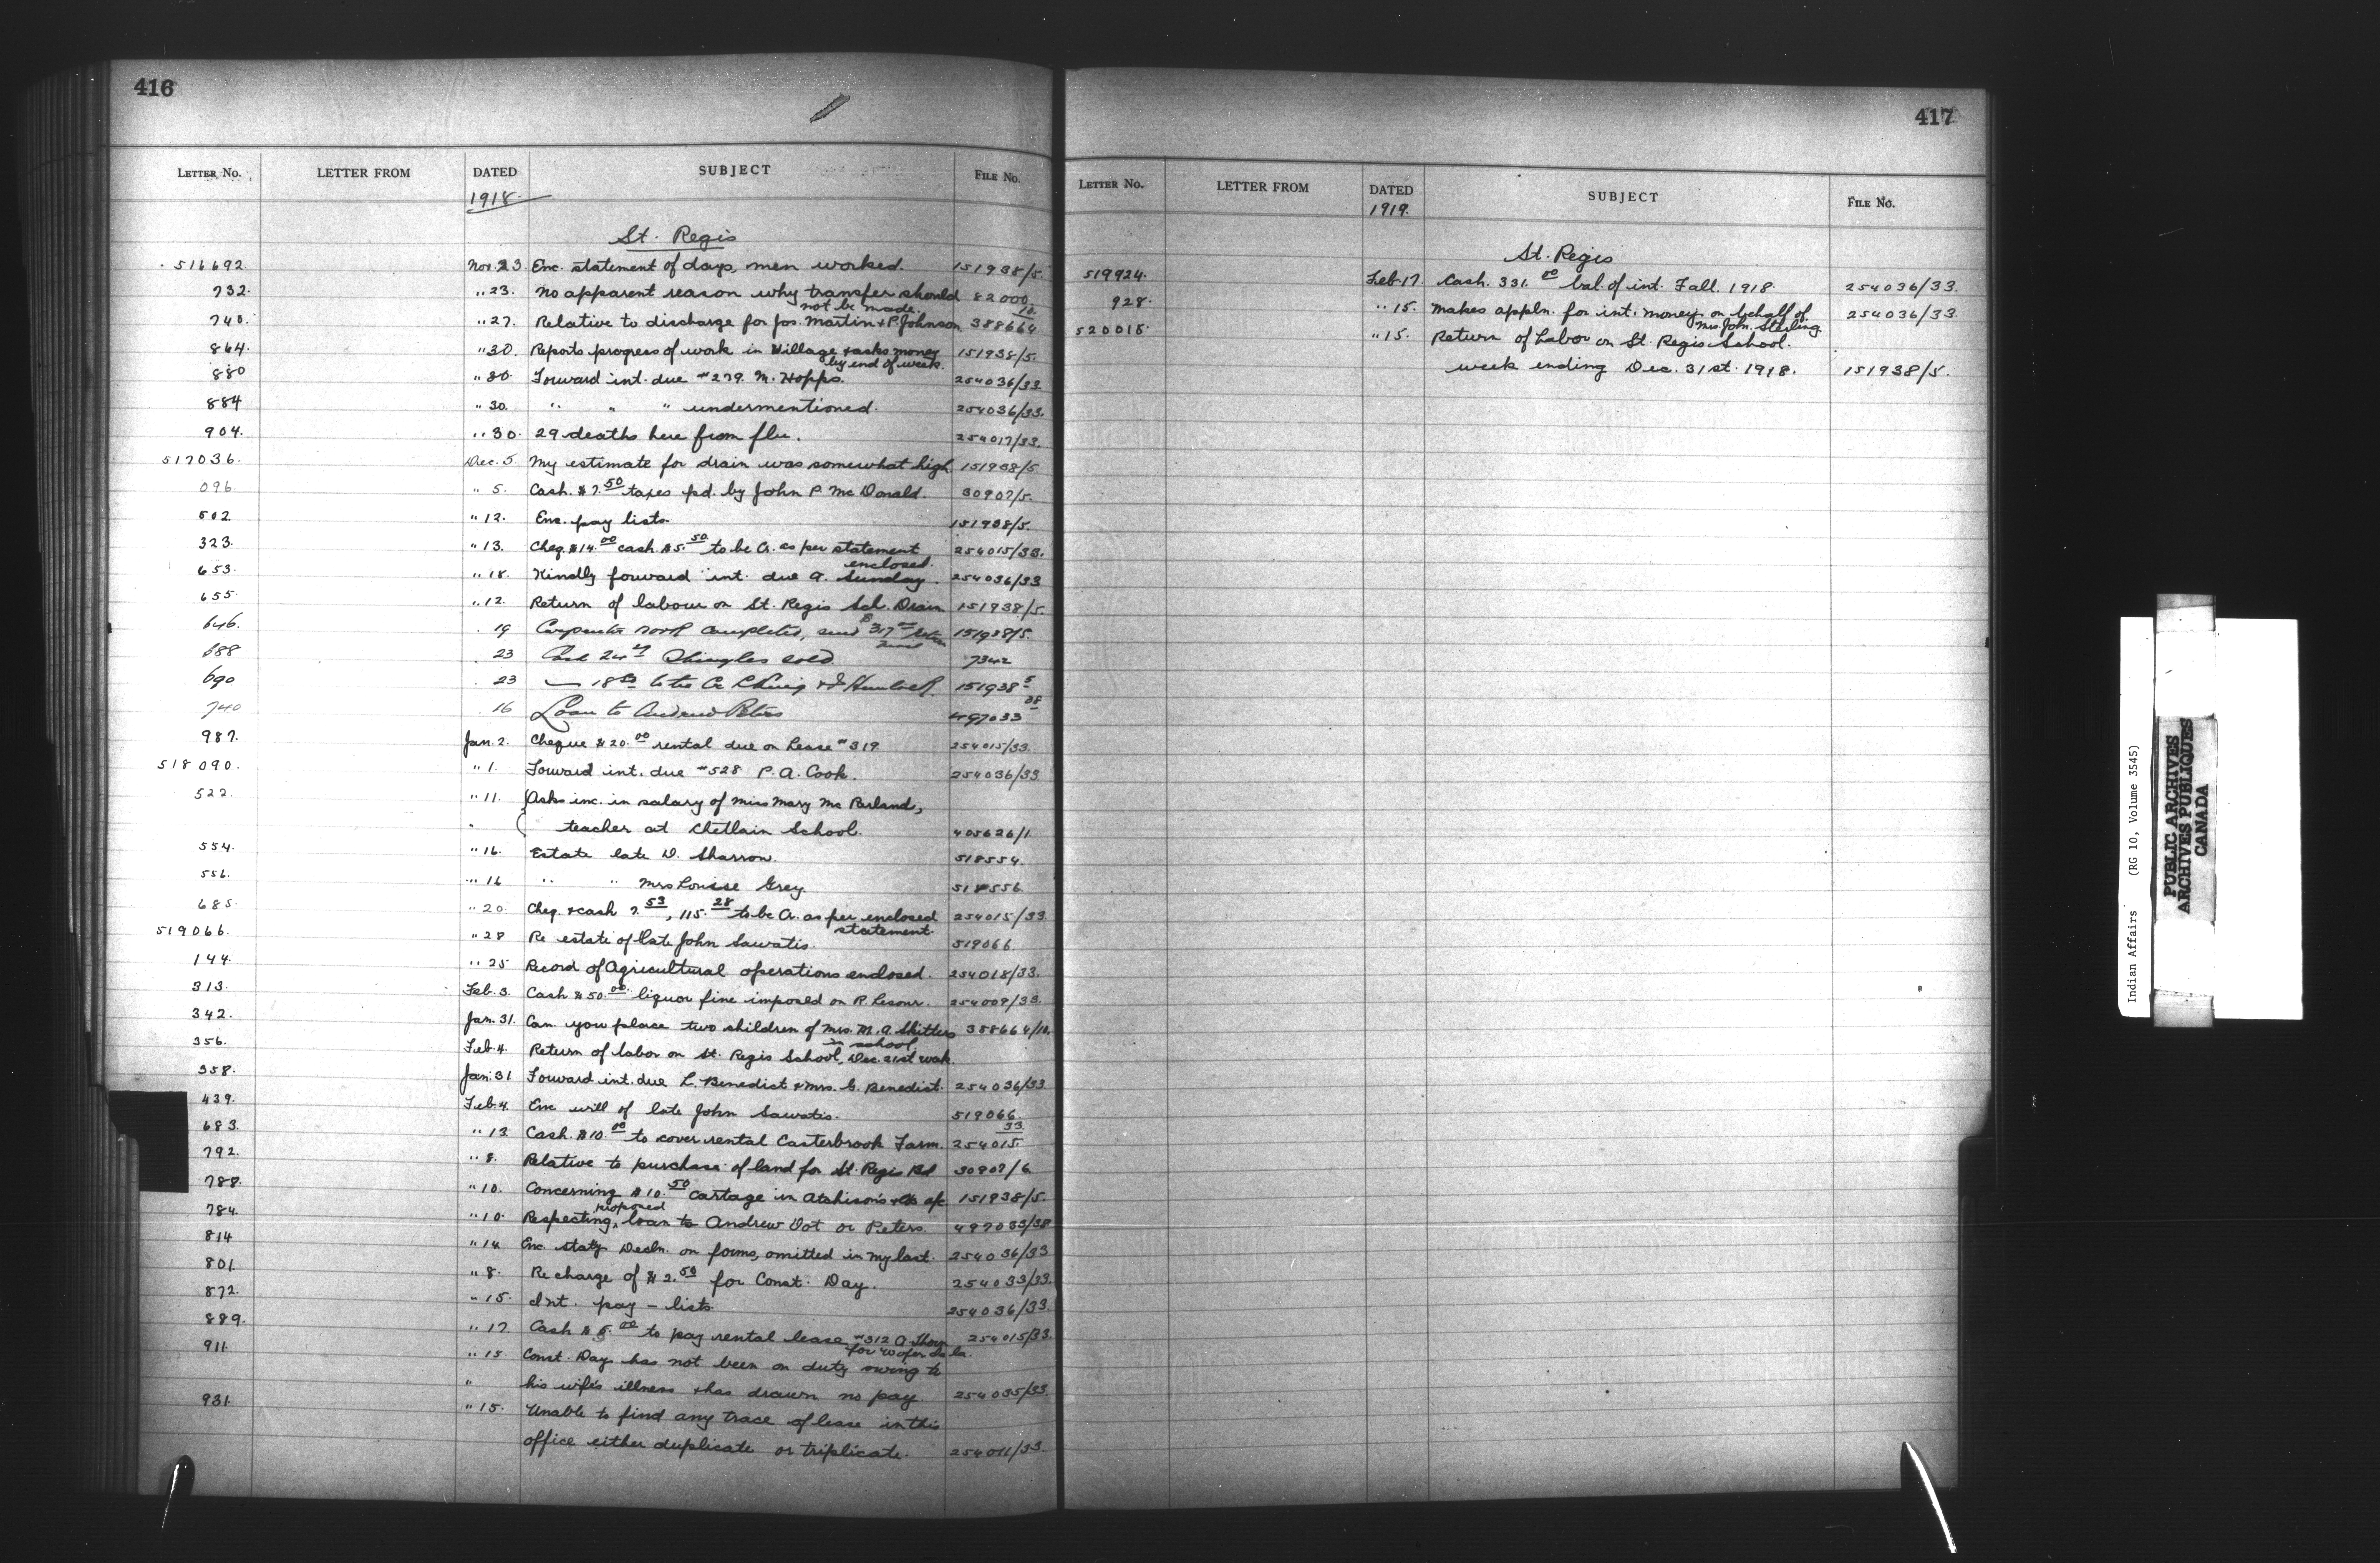 416
LETTER NO. LETTER FROM DATED SUBJECT FILE NO.
1918
St. Regis
516692 Nov. 23 Enc. statement of days, men worked. 151938/5.
732. " 23. No apparent reason why transfer should 82000
not be made. 10.
740. " 27. Relative to discharge for Jos. Martin & P. Johnson 388664
864. " 30. Reports progress of work in Village & asks money 151938/5.
by end of week.
880 " 30 Forward int. due #279. M. Hopps. 254036/33
884 " 30. " " " undermentioned. 254036/33.
904. " 30. 29 deaths here from flu. 254017/33.
517036. Dec. 5. My estimate for drain was somewhat high 151938/5
096. " 5. Cash. $7.50 taxes pd. by John P. McDonald. 30907/5.
502 " 12. Enc. pay lists. 151938/5.
323. " 13. Cheq. $14.00 cash $5.50 to be Cr. as per statement 254015/33.
enclosed.
653. " 18. Kindly forward int. due A. Sunday. 254036/33
655. " 12. Return of labour on St. Regis Sch. Drain 151938/5.
646. 19 Carpenter work completed, send 151938/5.
688 23 Shingles sold 7342
690 23 151938 5
740 16 Loan to Andrew Peters 497033 38
987. Jan. 2. Cheque $20.00 rental due on Lease #319 254015/33.
518090. " 1. Forward int. due #528 P. A. Cook. 254036/33
522. " 11. Asks inc. in salary of Miss Mary McParland,
teacher at Chetlain School. 405626/1.
554. " 16. Estate late D. Sharrow. 518554.
556. " 16 " " Mrs Louise Grey 518556
685. " 20. Cheq. & cash 7.53, 115.28 to be Cr. as per enclosed 254015/33
statement.
519066. " 28 Re estate of late John Sawatis. 519066.
144. " 25 Record of Agricultural operations enclosed. 254018/33.
313. Feb. 3. Cash $50.00 liquor fine imposed on P. 254009/33.
342. Jan. 31. Can you place two children of Mrs. M. A. Skitters 388664/10.
in school
356. Feb. 4. Return of labor on St. Regis School, Dec. 21st week.
358. Jan. 31 Forward int. due L. Benedict & Mrs. C. Benedict. 254036/33
439. Feb. 4. Enc will of late John Sawatis. 519066.
683. " 13 Cash. $10.00 to cover rental Casterbrook Farm. 254015 33
792. " 8. Relative to purchase of land for St. Regis Bd 30907/6
788. " 10. Concerning $10.50 cartage in Atchison's & Co a/c 151938/5.
proposed
784. " 10. Respecting loan to Andrew Dot or Peters. 497033/38
814 " 14 Enc. staty. Decln. on forms, omitted in my last. 254036/33
801. " 8. Re charge of $2.50 for Const. Day. 254033/33.
872. " 15. Int. pay - lists. 254036/33.
889. " 17. Cash $5.00 to pay rental lease #312 A. 254015/33.
911. " 15. Const. Day has not been on duty owing to
" his wife's illness & has drawn no pay 254035/33
931. " 15. Unable to find any trace of lease in this
office either duplicate or triplicate. 254011/33.
417
LETTER NO. LETTER FROM DATED SUBJECT FILE NO.
1919.
St. Regis
519924. Feb 17. Cash. 331.00 bal. of int. Fall. 1918. 254036/33.
928. " 15. Makes appln. for int. money on behalf of 254036/33
Mrs. John Sterling
520018. " 15. Return of Labor on St. Regis School.
week ending Dec. 31st. 1918. 151938/5.
Indian Affairs (RG 10, Volume 3545)
PUBLIC ARCHIVES
ARCHIVES PUBLIQUES
CANADA